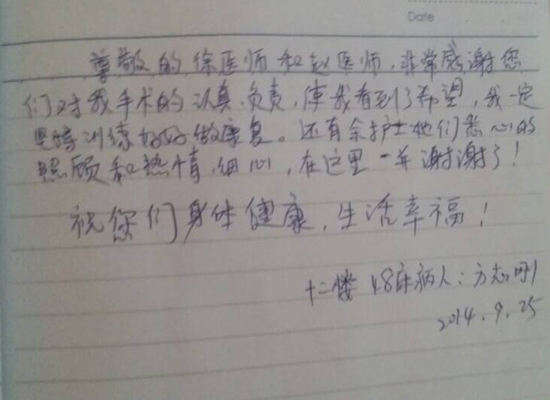 Date
尊敬的徐医师和赵医师,非常感谢您
们对我手术的认真.负责,使我看到了希望,我一定
坚持训练好好做康复。还有余护士她们悉心的
照顾和热情.细心,在这里一并谢谢了!
祝您们身体健康,生活幸福!
十二楼 48床病人:方志刚
2014.9.25